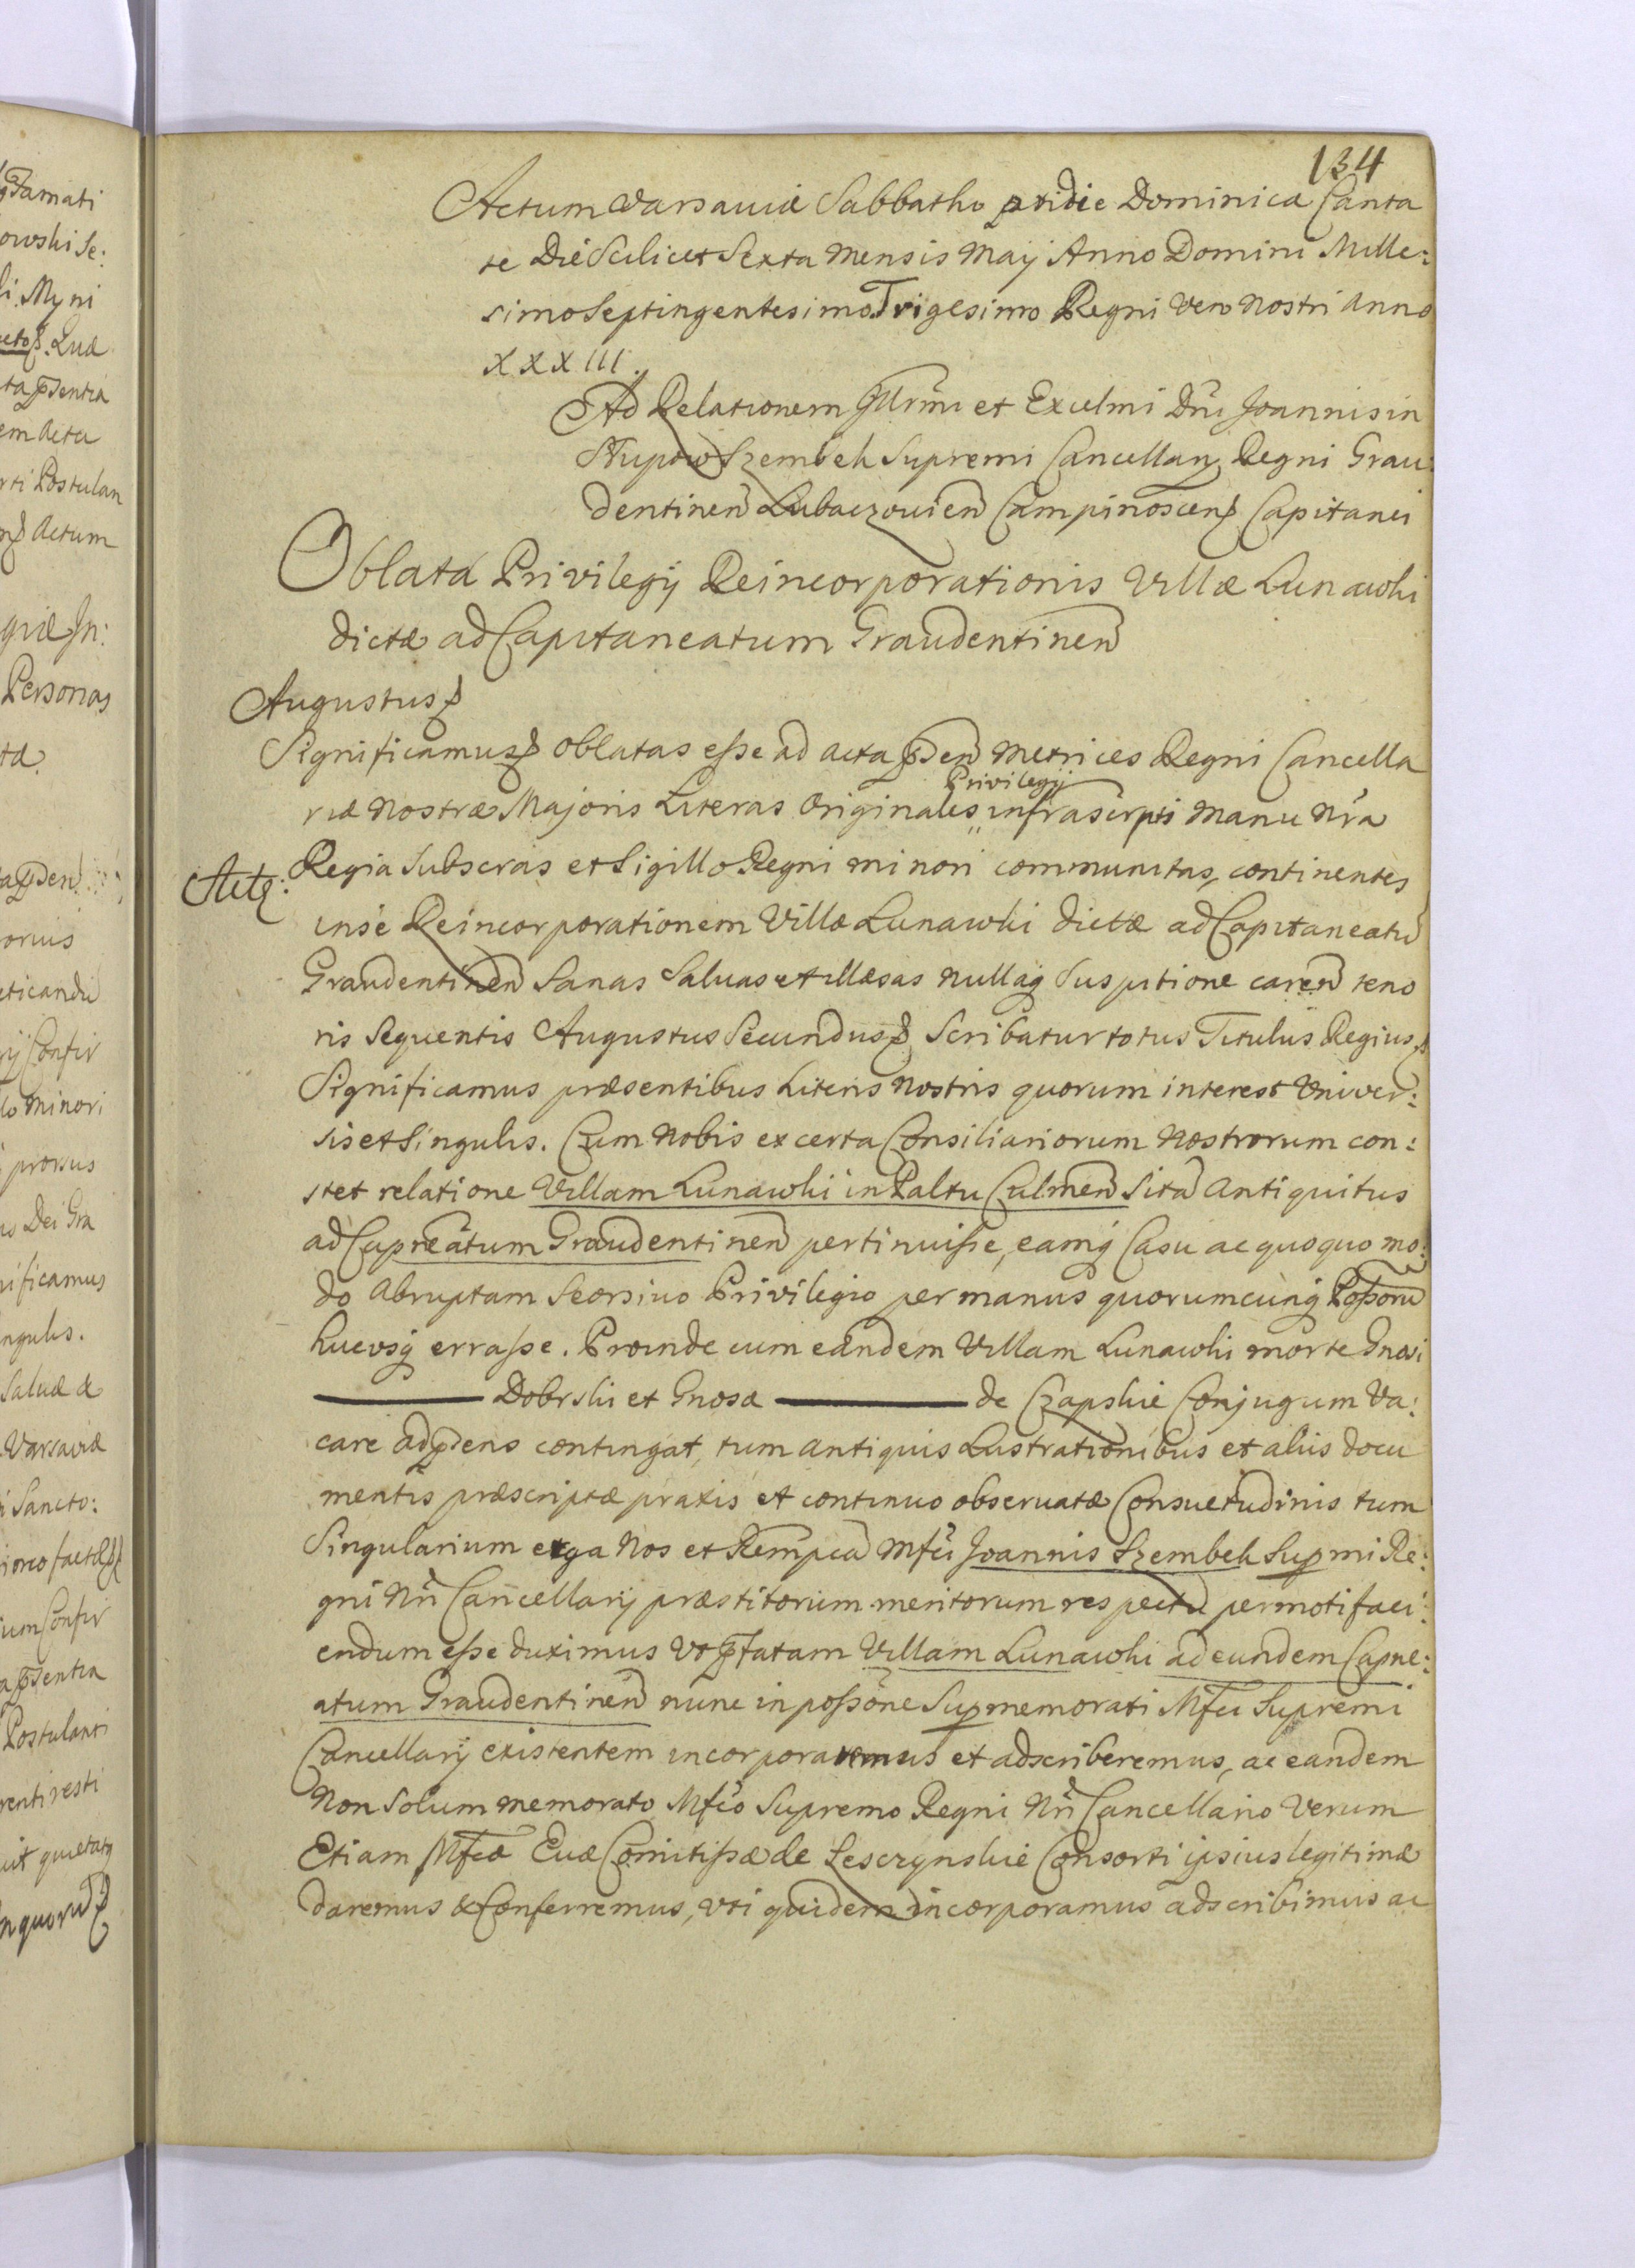 134
Actum Varsaviæ Sabbatho pridie Dominicæ Canta
te Die Scilicet Sexta Mensis Maij Anno Domini Mille:
simo Septingentesimo Trigesimo Regni Vero Nostri Anno
XXXIII.
Ad Relationem Illrmi et Excelmi Dni Joannis in
Słupow Szembek Supremi Cancellarij Regni Grau:
dentinen Lubaczovien Campinoscen Capitanei
Oblata Privilegij Reincorporationis Villæ Lunawki
dictæ ad Capitaneatum Graudentinen
Augustus
Significamus oblatas esse ad acta pnden Metrices Regni Cancella
Privilegij
riæ Nostræ Majoris Literas Originales infrascrpti Manu Nra
Regia Subscras et Sigillo Regni minori communitas, continentes
in se Reincorporationem Villæ Lunawki dictæ ad Capitaneatu
Graudentinen Sanas Salvas et illæsas nullaq Suspitione caren teno
ris Sequentis Augustus Secundus Scribatur totus Titulus Regius
Significamus præsentibus Literis Nostris quorum interest Univer:
sis et Singulis. Cum Nobis ex certa Consiliariorum Nostrorum con:
stet relatione Villam Lunawki in Paltu Culmen Sita Antiquitus
ad Capneatum Graudentinen pertinuisse, eamq Casu ac quoquo mo:
do Abruptam Seorsivo Privilegio per manus quorumcunq Possoru
hucusq errasse. Proinde cum eandem Villam Lunawki morte Gnosi
Dobrski et Gnosæ de Czapskie Conjugum Va:
care ad pdens contingat, tum antiquis Lustrationibus et aliis docu
mentis præscriptæ praxis et continuo observatæ Consuetudinis tum
Singularium erga Nos et Rempca Mfci Joannis Szembek Supmi Re:
gni Nri Cancellarij præstitorum meritorum respectu permoti faci:
endum esse duximus Ut pfatam Villam Lunawki ad eundem Capne:
atum Graudentinen nunc in possone Supmemorati Mfci Supremi
Cancellarij existentem incorporaremus et adscriberemus, ac eandem
Non Solum memorato Mfco Supremo Regni Nri Cancellario Verum
Etiam Mfcæ Evæ Comitissæ de Lesczynskie Consorti ipsius legitimæ
daremus & Conferremus, Uti quidem incorporamus adscribimus ac